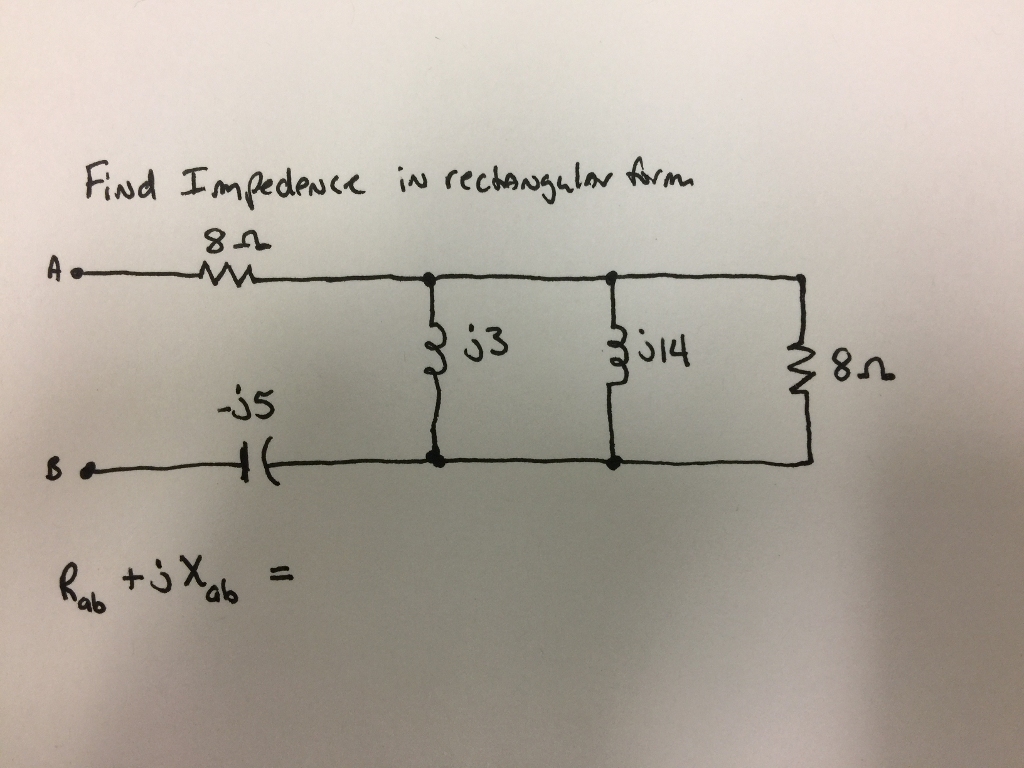 Find Impedence in rectangular form
8Ω
A
j3
j14
8Ω
-j5
B
Rab + jXab =